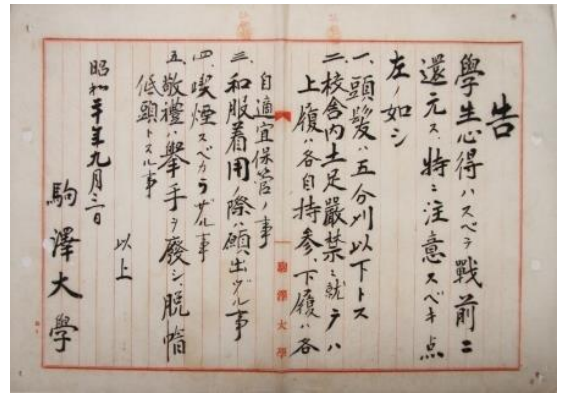 告
學生心得ハスベテ戰前ニ
還元ス、特ニ注意スベキ点
左ノ如シ
一、頭髮ハ五分刈以下トス
二、校舎内土足嚴禁ニ就テハ
上履ハ各自持參、下履ハ各
自適宜保管ノ事
三、和服着用ノ際ハ願出ヅル事
四、喫煙スベカラザル事
五、敬禮ハ擧手ヲ廢シ、脱帽
低頭トスル事
以上
昭和二十年九月三日
駒澤大學
駒澤大學